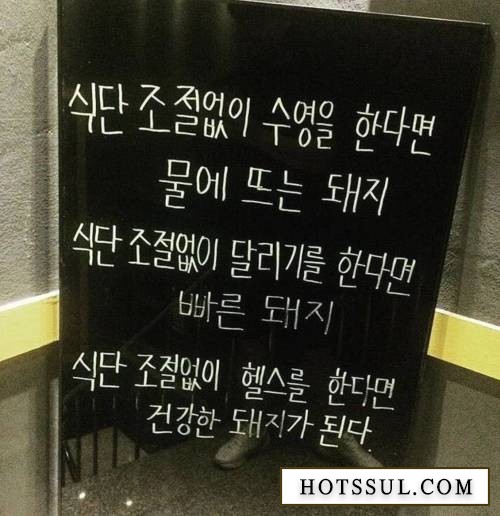 식단 조절없이 수영을 한다면
물에 뜨는 돼지
식단 조절없이 달리기를 한다면
빠른 돼지
식단 조절없이 헬스를 한다면
건강한 돼지가 된다.
HOTSSUL.COM